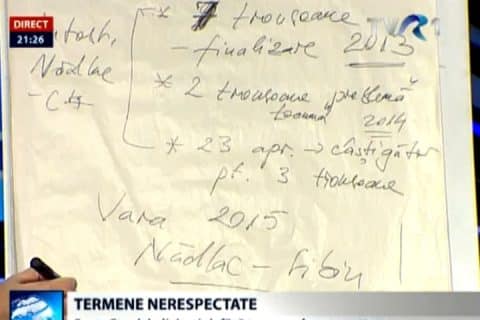 DIRECT
21:26
TVR 1
* 7 tronsoane
- finalizare 2013
Nădlac
* 2 tronsoane problemă
toamnă 2014
* 23 apr. → câștigător
pt. 3 tronsoane
Vara 2015
Nădlac - Sibiu
TERMENE NERESPECTATE